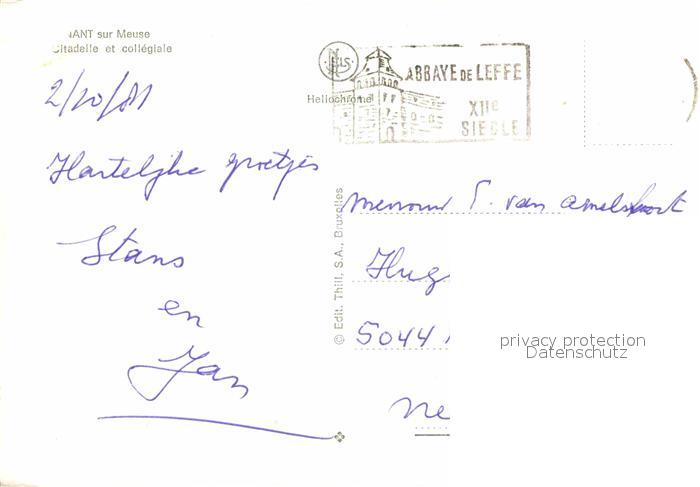 NANT sur Meuse
Citadelle et collégiale
NELS
Heliochrome
ABBAYE DE LEFFE
XIIe
SIECLE
2/10/81
Hartelijke groetjes
Stans
en
Jan
© Edit. Thill, S.A., Bruxelles
mevrouw T. van Amelsfoort
Hug
5044
Ne
privacy protection
Datenschutz